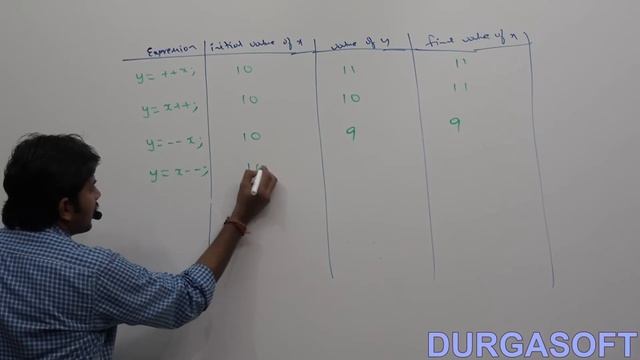 Expression initial value of x value of y final value of x
y = ++x; 10 11 11
y = x++; 10 10 11
y = --x; 10 9 9
y = x--; 10
DURGASOFT